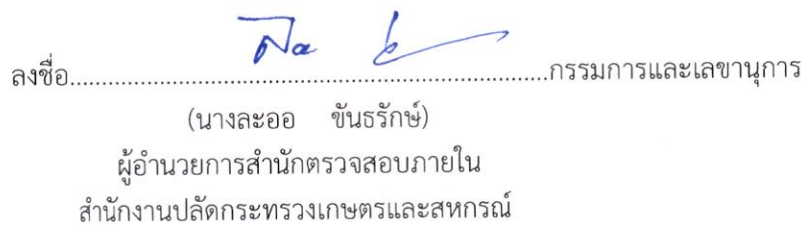 ลงชื่อ...............................................................................กรรมการและเลขานุการ
(นางละออ ขันธรักษ์)
ผู้อำนวยการสำนักตรวจสอบภายใน
สำนักงานปลัดกระทรวงเกษตรและสหกรณ์